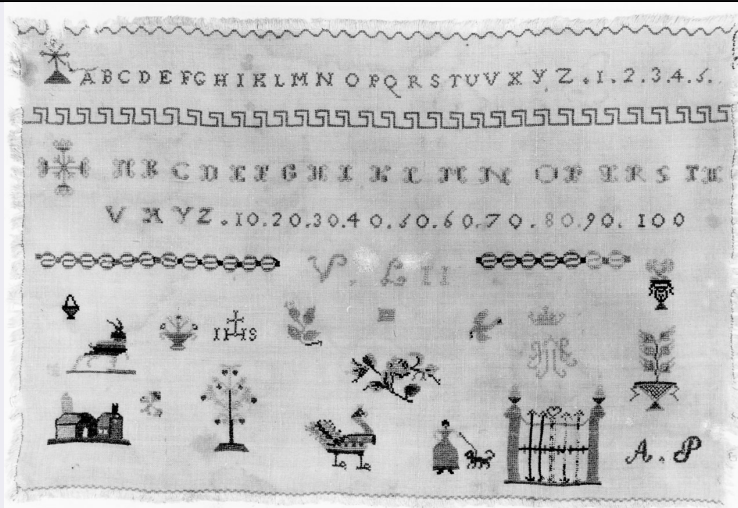 ABCDEFGHIKLMNOPQRSTUVXYZ.1.2.3.4.5.
ABCDEFGHIKLMNOPQRSTU
VXYZ.10.20.30.40.50.60.70.80.90.100
V. L II
IHS
A.P